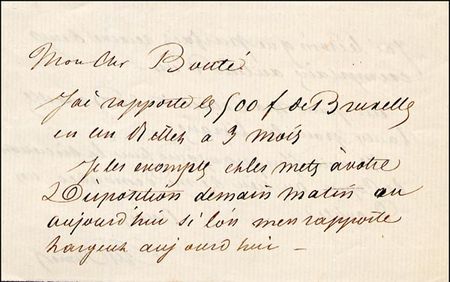 Mon cher Bouté
J'ai rapporté les 500 f de Bruxelles
en un Billet a 3 mois
Je les escompte et les mets à votre
Disposition demain matin ou
aujourd'hui si l'on m'en rapporte
l'argent aujourd'hui —